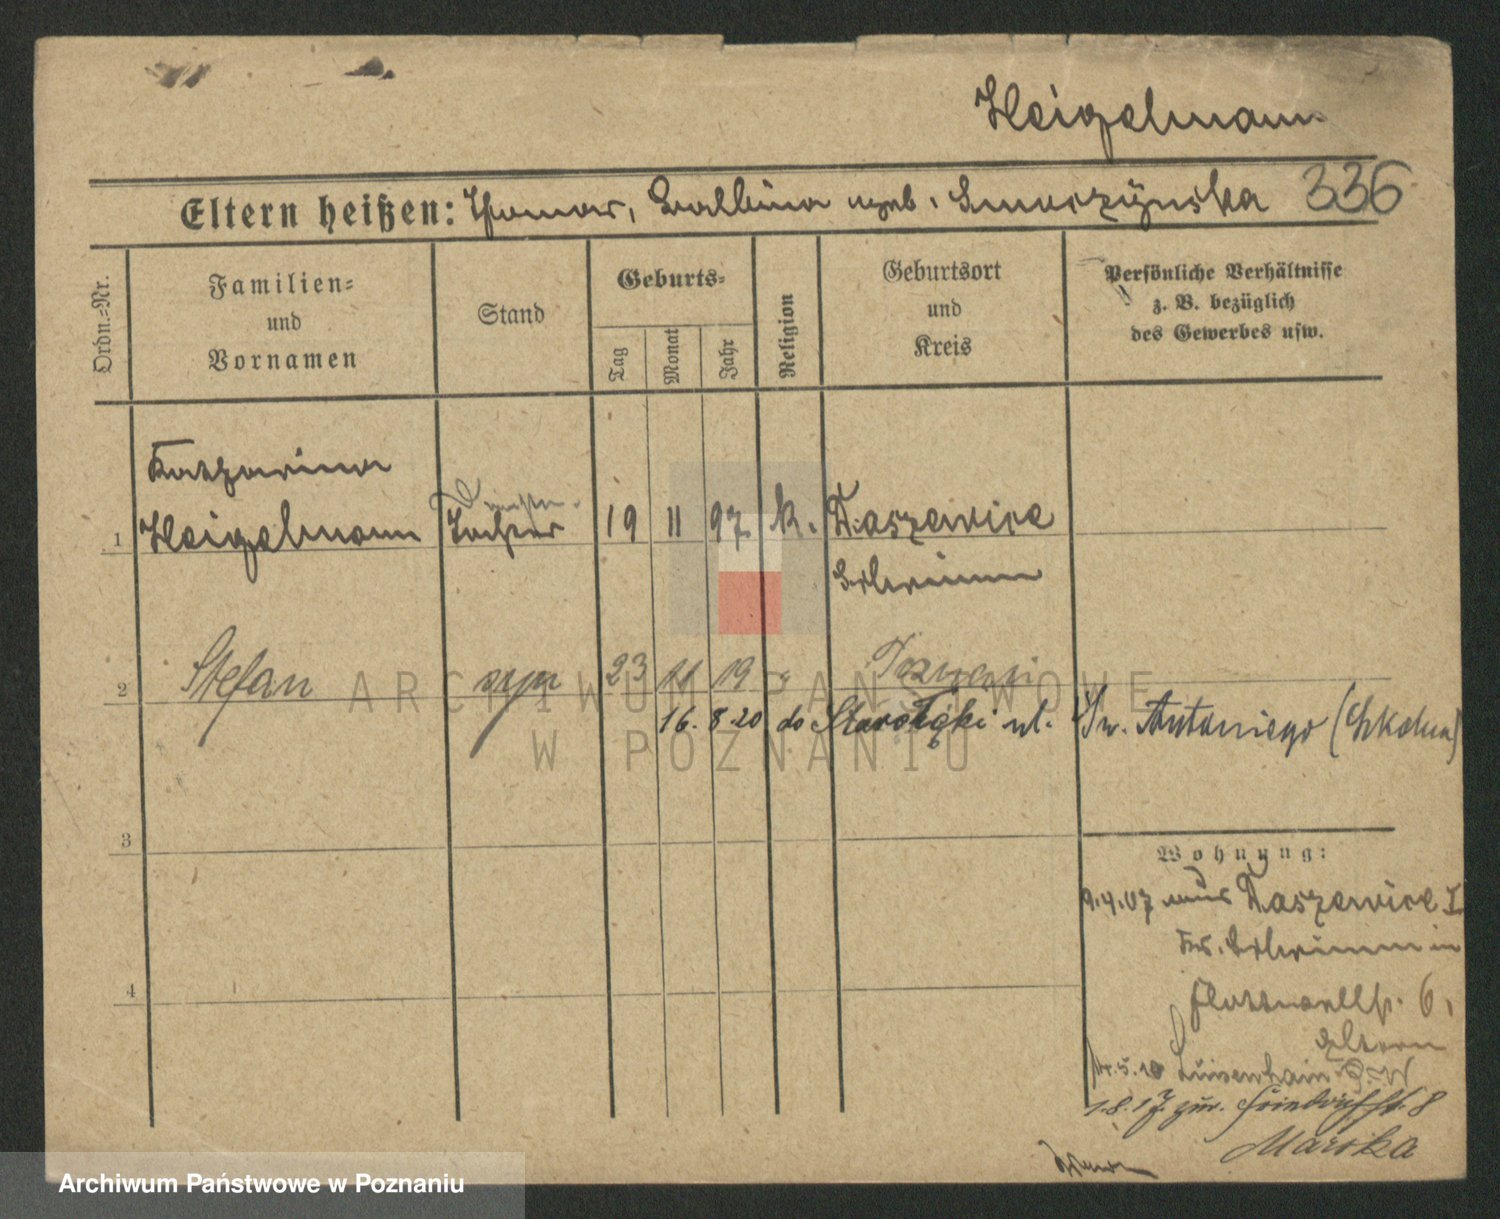 Heigelmann
Eltern heißen: Thomas, Balbina geb. Smorczynska 336
Ordn.-Nr.
Familien-
und
Vornamen
Stand
Geburts-
Tag
Monat
Jahr
Religion
Geburtsort
und
Kreis
Persönliche Verhältnisse
z. B. bezüglich
des Gewerbes usw.
Katharina
1 Heigelmann Tochter 19 11 97 k. Daszewice
Schrimm
2 Stefan syn 23 11 19 " Poznań
16. 8 20 do Starołęki ul. Św. Antoniego (Szkolna)
3
4
Wohnung:
9.4.07 aus Daszewice I
Kr. Schrimm in
6,
Eltern
5.10 Luisenhain
1.8.17 zur. 8
Marska
ARCHIWUM PAŃSTWOWE
W POZNANIU
Archiwum Państwowe w Poznaniu